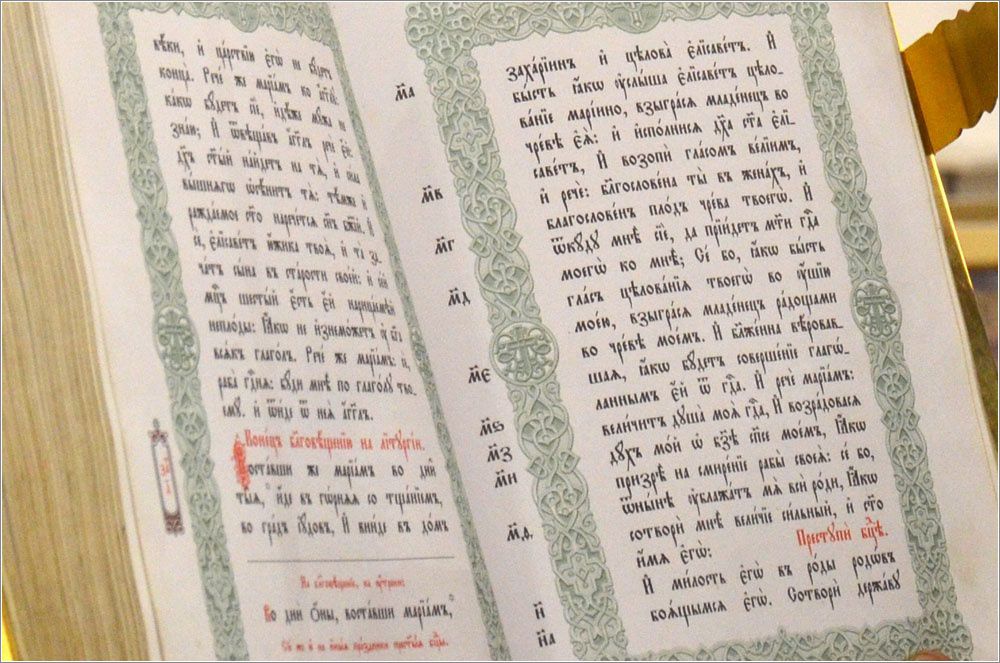 вѣ́ки, и҆ ца́рствїи є҆гѡ̀ не бꙋ́детъ
конца̀. Рече́ же марїа́мъ ко а҆́гг҃лꙋ:
ка́кѡ бꙋ́детъ сїѐ, и҆дѣ́же мꙋ́жа не
зна́ю; И҆ ѿвѣща́въ а҆́гг҃лъ речѐ є҆́й:
дх҃ъ ст҃ы́й на́йдетъ на тѧ̀, и҆ си́ла
вы́шнѧгѡ ѡ҆сѣни́тъ тѧ̀: тѣ́мже и҆
ражда́емое ст҃о нарече́тсѧ сн҃ъ бж҃їй. И҆
сѐ, є҆лїсаве́тъ ю҆́жика твоѧ̀, и҆ та̀ за-
ча́тъ сы́на въ ста́рости свое́й: и҆ се́й
мц҃ъ шесты́й є҆́сть є҆́й нарица́емѣй
непло́ды: Ꙗ҆́кѡ не и҆знемо́жетъ ᲂу҆ бг҃а
всѧ́къ глаго́лъ. Рече́ же марїа́мъ:
раба̀ гдⷭ҇нѧ: бꙋ́ди мнѣ̀ по глаго́лꙋ тво-
емꙋ̀. и҆ ѿи́де ѿ неѧ̀ а҆́гг҃лъ.
Коне́цъ бл҃говѣ́щенїю на лїтꙋргі́и.
Воста́вши же марїа́мъ во дни̑
ты̑ѧ, и҆́де въ гѡ́рнѧѧ со тща́нїемъ,
во гра́дъ і҆ꙋ́довъ, И҆ вни́де въ до́мъ
На бл҃говѣ́щенїе, на ᲂу҆́трени:
Во дни̑ ѡ҆́ны, воста́вши марїа́мъ,
м҃а
м҃в
м҃г
м҃д
м҃є
м҃ѕ
м҃з
м҃и
м҃ѳ
н҃
н҃а
заха́рїинъ и҆ цѣлова̀ є҆лїсаве́тъ. И҆
бы́сть ꙗ҆́кѡ ᲂу҆слы́ша є҆лїсаве́тъ цѣло-
ва́нїе марі́ино, взыгра́сѧ младе́нецъ во
чре́вѣ є҆ѧ̀: и҆ и҆спо́лнисѧ дх҃а ст҃а є҆лї-
саве́тъ, И҆ возопѝ гла́сомъ ве́лїимъ,
и҆ речѐ: бл҃гослове́на ты̀ въ жена́хъ, и҆
благослове́нъ пло́дъ чре́ва твоегѡ̀. И҆
ѿкꙋ́дꙋ мнѣ̀ сїѐ, да прїи́детъ мт҃и гдⷭ҇а
моегѡ̀ ко мнѣ̀; Се́ бо, ꙗ҆́кѡ бы́сть
гла́съ цѣлова́нїѧ твоегѡ̀ во ᲂу҆́шїю
мое́ю, взыгра́сѧ младе́нецъ ра́дощами
во чре́вѣ мое́мъ. И҆ бл҃же́нна вѣ́ровав-
шаѧ, ꙗ҆́кѡ бꙋ́детъ соверше́нїе глагѡ́-
ланнымъ є҆́й ѿ гдⷭ҇а. И҆ речѐ марїа́мъ:
вели́читъ дꙋша̀ моѧ̀ гдⷭ҇а, И҆ возра́довасѧ
дꙋ́хъ мо́й ѡ҆ бз҃ѣ сп҃сѣ мое́мъ, Ꙗ҆́кѡ
призрѣ̀ на смире́нїе рабы̀ своеѧ̀: се́ бо,
ѿны́нѣ ᲂу҆блажа́тъ мѧ̀ всѝ ро́ди, Ꙗ҆́кѡ
сотворѝ мнѣ̀ вели́чїе си́льный, и҆ ст҃о
и҆́мѧ є҆гѡ̀:
Престꙋпѝ бц҃ѣ.
И҆ ми́лость є҆гѡ̀ въ ро́ды родѡ́въ
боѧ́щымсѧ є҆гѡ̀. Сотворѝ держа́вꙋ